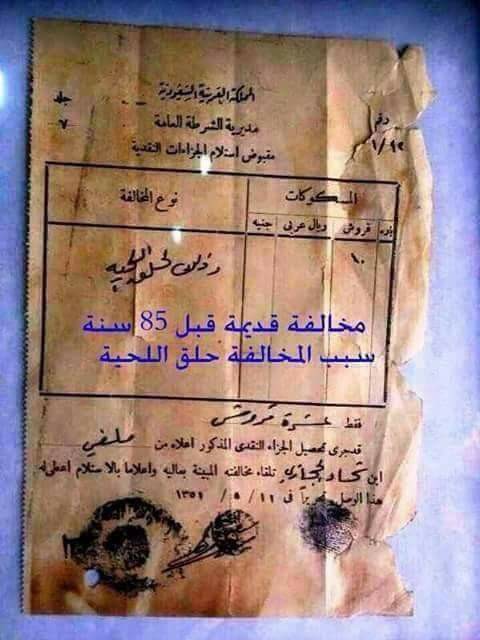 المملكة العربية السعودية
جلد ٧
مديرية الشرطة العامة
رقم ١/١٢
مقبوض استلام الجزاءات النقدية
المسكوكات
نوع المخالفة
باره قروش ريال عربي جنيه
١٠
وذلك لحلقه اللحيه
مخالفة قديمة قبل 85 سنة
سبب المخالفة حلق اللحية
فقط عشرة قروش
قد جرى تحصيل الجزاء النقدي المذكور اعلاه من
ابن تلقاء مخالفته المبينة بعاليه واعلاما بالاستلام اعطى له
هذا الوصل تحريراً في ١١ / ٥ / ١٣٥١